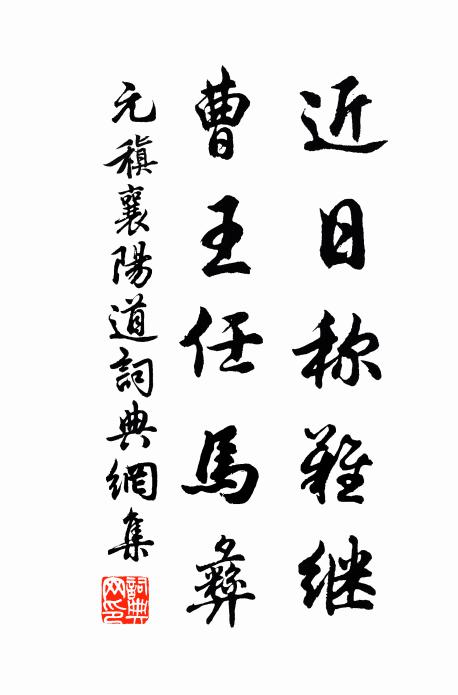 近日称難继
曹王任馬彝
元稹襄陽道詞典網集
詞典網印